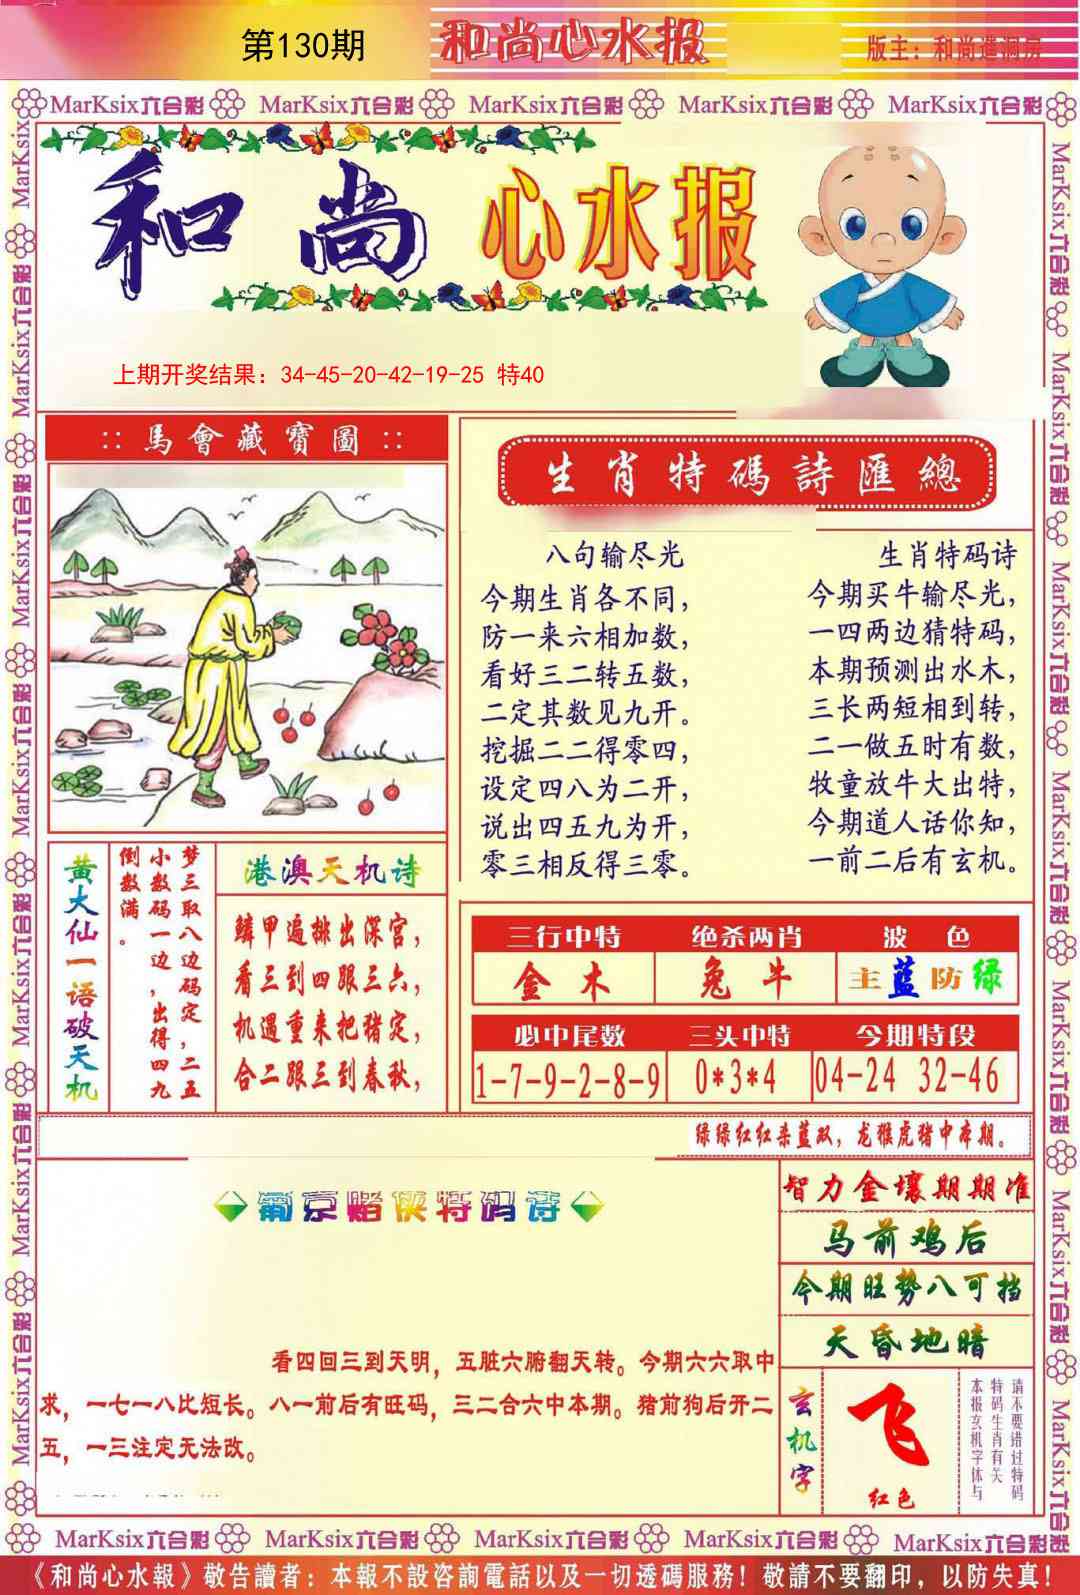 第130期
和尚心水报
版主：和尚造洞房
MarKsix六合彩 MarKsix六合彩 MarKsix六合彩 MarKsix六合彩 MarKsix六合彩
和尚 心水报
上期开奖结果：34-45-20-42-19-25 特40
:: 馬會藏寶圖 ::
生肖特碼詩匯總
八句输尽光
今期生肖各不同，
防一来六相加数，
看好三二转五数，
二定其数见九开。
挖掘二二得零四，
设定四八为二开，
说出四五九为开，
零三相反得三零。
生肖特码诗
今期买牛输尽光，
一四两边猜特码，
本期预测出水木，
三长两短相到转，
二一做五时有数，
牧童放牛大出特，
今期道人话你知，
一前二后有玄机。
黄大仙一语破天机
梦三取八边码定，二五
小数码一边，出得四九
倒数满。
港澳天机诗
鳞甲遍排出深宫，
看三到四跟三六，
机遇重来把猪定，
合二跟三到春秋，
三行中特 绝杀两肖 波 色
金 木 兔 牛 主蓝防绿
必中尾数 三头中特 今期特段
1-7-9-2-8-9 0*3*4 04-24 32-46
绿绿红红杀蓝双，龙猴虎猪中本期。
葡京赌侠特码诗
看四回三到天明，五脏六腑翻天转。今期六六取中
求，一七一八比短长。八一前后有旺码，三二合六中本期。猪前狗后开二
五，一三注定无法改。
智力金壤期期准
马前鸡后
今期旺势八可挡
天昏地暗
玄机字
飞
红色
请不要错过特码
特码生肖有关
本报玄机字体与
MarKsix六合彩 MarKsix六合彩 MarKsix六合彩 MarKsix六合彩 MarKsix六合彩
《和尚心水報》敬告讀者：本報不設咨詢電話以及一切透碼服務！敬請不要翻印，以防失真！